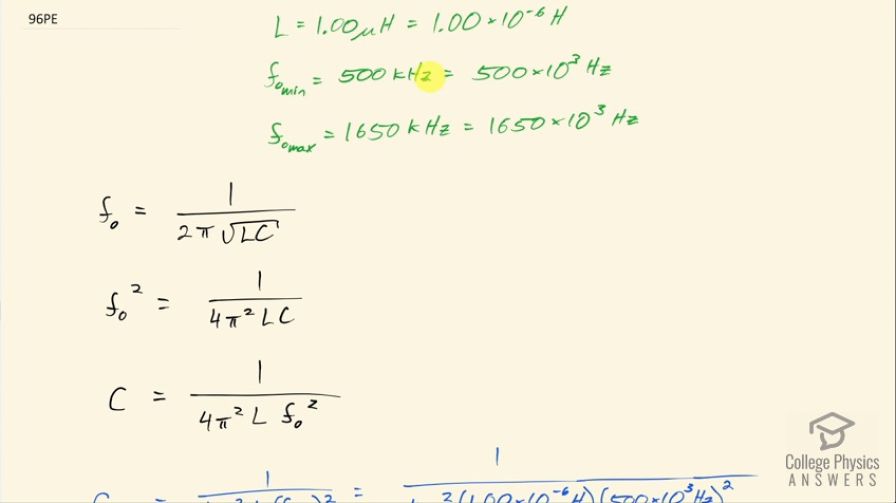 96PE
L = 1.00 μH = 1.00 × 10⁻⁶ H
f₀ₘᵢₙ = 500 kHz = 500 × 10³ Hz
f₀ₘₐₓ = 1650 kHz = 1650 × 10³ Hz
f₀ = 1 / 2π √LC
f₀² = 1 / 4π² LC
C = 1 / 4π² L f₀²
= 1 / = 1 / (1.00 × 10⁻⁶ H)(500 × 10³ Hz)²
College Physics
ANSWERS